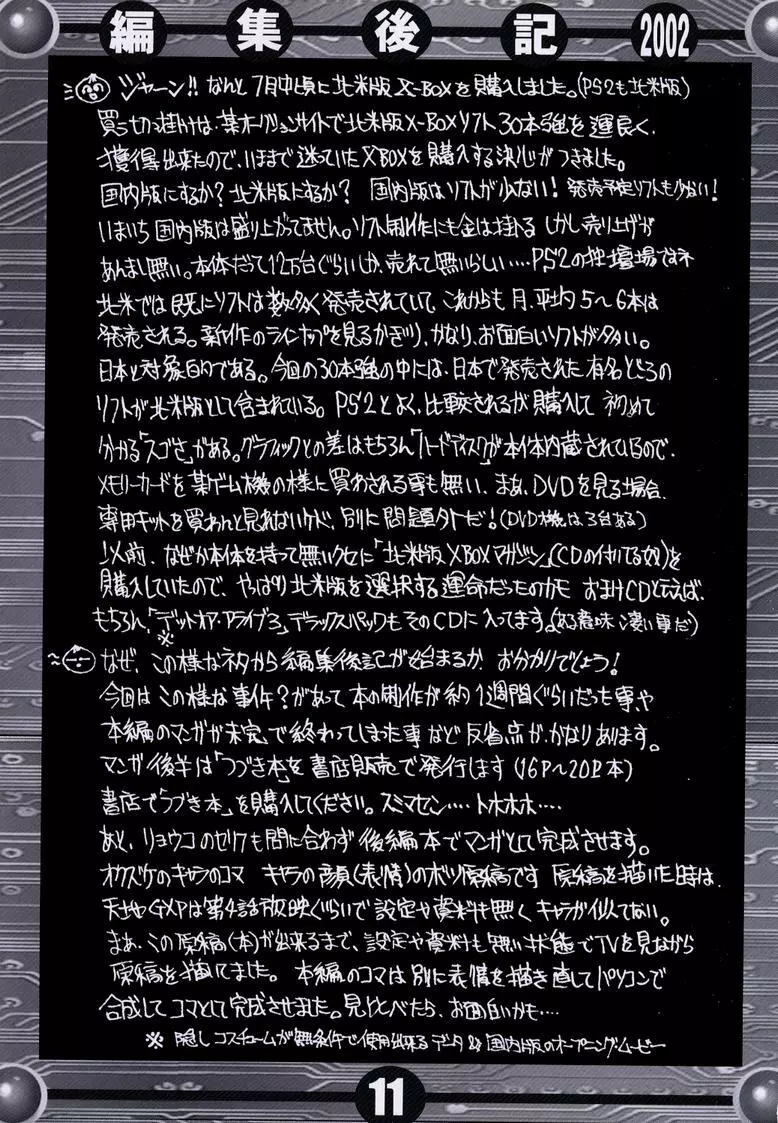 編集後記 2002
ジャーン!! なんと7月中頃に北米版X-BOXを購入しました。(PS2も北米版)
買う切っ掛けは、某オークションサイトで北米版X-BOXソフト30本強を運良く、
獲得出来たので、いままで迷っていたXBOXを購入する決心がつきました。
国内版にするか?北米版にするか? 国内版はソフトが少ない! 発売予定ソフトも少ない!
いまいち国内版は盛り上がってません。ソフト制作にも金は掛る しかし売り上げが
あんまし無い。本体だって12万台ぐらいしか、売れて無いらしい‥‥PS2の独壇場ですネ
北米では既にソフトは数多く発売されていて、これからも、月、平均5〜6本は
発売される。新作のラインナップを見るかぎり、かなり、お面白いソフトが多い。
日本と対象的である。今回の30本強の中には、日本で発売された有名どころの
ソフトが北米版として含まれている。PS2とよく、比較されるが購入して 初めて
分かる「スゴさ」がある。グラフィックとの差はもちろん「ハードディスク」が本体内蔵されているので、
メモリーカードを某ゲーム機の様に買わされる事も無い、まあ、DVDを見る場合、
専用キットを買わんと見れないケド、別に問題外だ!(DVD機は3台ある)
以前、なぜか本体を持って無いクセに「北米版XBOXマガジン」(CDの付いてる奴)を
購入していたので、やはり北米版を選択する運命だったのかも おまけCDと云えば、
もちろん、「デッドオア・アライブ3」デラックスパックもそのCDに入ってます。(ある意味 凄い事だ)
※
なぜ、この様なネタから編集後記が始まるか、お分かりでしょう!
今回はこの様な事件?があって本の制作が約1週間ぐらいだった事や
本編のマンガが未完、で終わってしまった事など反省点が、かなりあります。
マンガ後半は「つづき本」を書店販売で発行します(16P〜20P本)
書店で「つづき本」を購入してください。スミマセン‥‥トホホホ‥‥
あと、リョウコのゼクも間に合わず後編本でマンガとして完成させます。
オクヅケのキャラのコマ キャラの顔(表情)のボツ原稿です 原稿を描いた時は、
天地GXPは第4話放映ぐらいで設定や資料も無く キャラが似てない。
まあ、この原稿(本)が出来るまで、設定や資料も無い状態でTVを見ながら
原稿を描いてました。本編のコマは別に表情を描き直してパソコンで
合成してコマとして完成させました。見比べたら、お面白いかも‥‥
※ 隠しコスチュームが無条件で使用出来るデータ&国内版のオープニングムービー
11